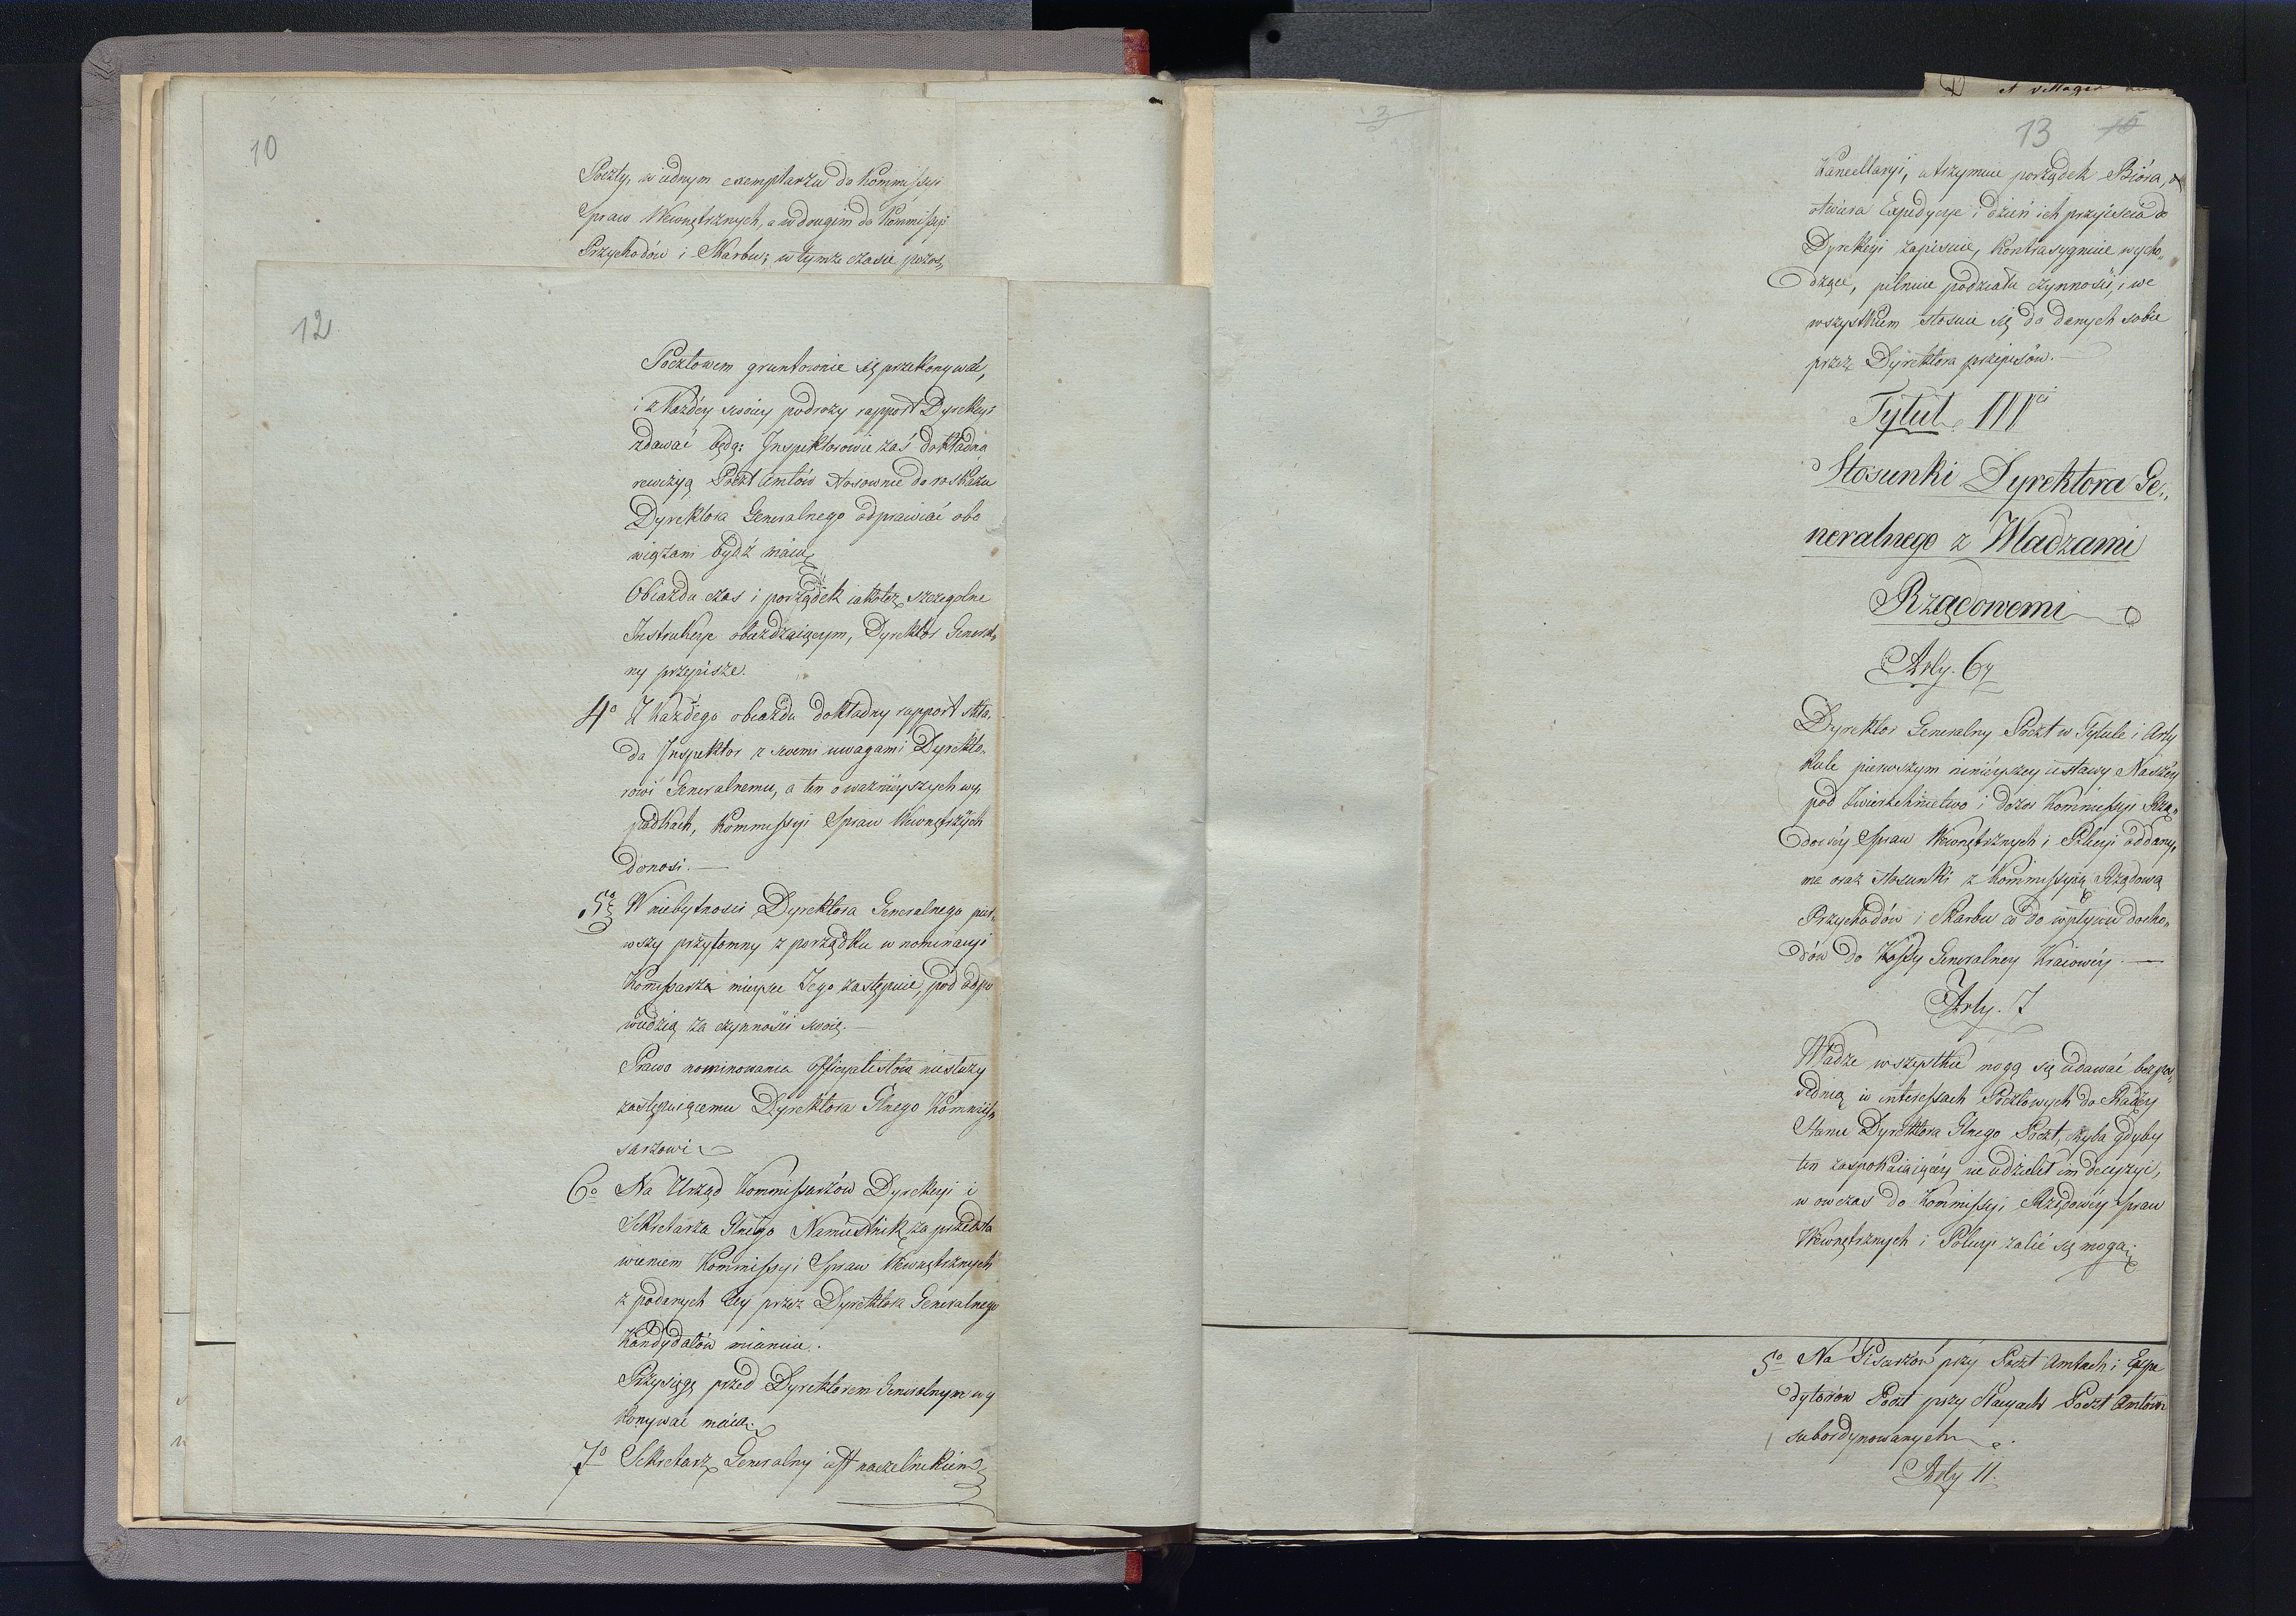 10
Poczty, w iednym exemplarzu do Kommissyi
Spraw Wewnętrznych, a w drugim do Kommissyi
Przychodów i Skarbu; w tymże czasie pozos„
12.
Pocztowem gruntownie się przekonywać,
i z każdéy swoiey podroży rapport Dyrekcyi
zdawać będą: Inspektorowie zaś dokładną
rewizyą Poczt Amtów stosownie do roskazu
Dyrektora Generalnego odprawiać obo
wiązani bydź maią
Obiazdu czas i porządek iakoteż szczegolne
Instrukcye obiezdzaiącym, Dyrektor General„
ny przepisze.
4o Z każdego obiazdu dokładny rapport skła„
da Inspektor z swemi uwagami Dyrekto„
rowi Generalnemu, a ten o ważnieyszych wy„
padkach, Kommissyi Spraw Wewnętrznych
donosi. —
5o W niebytnosci Dyrektora Generalnego pier„
wszy przytomny z porządku w nominacyi
Komissarza mieysce Jego zastępuie, pod odpo
wiedzią za czynności swoie. —
Prawo nominowania Officyalistów niesłuży
zastępuiącemu Dyrektora Glnego Kommis„
sarzowi
6o Na Urząd Kommissarzów Dyrekcyi i
Sekretarza Glnego Namiestnik za przedsta
wieniem Kommissyi Spraw Wewnętrznych
z podanych Jey przez Dyrektora Generalnego
Kandydatów mianuie.
Przysięgę przed Dyrektorem Generalnym wy
konywać maią.
7o Sekretarz Generalny iest naczelnikiem
3
13 15
Kancellaryi, utrzymuie porządek Bióra,
otwiera Expedycye i dzień ich przyiścia do
Dyrekcyi zapisuie, kontrasygnuie wycho„
dzące, pilnuie podziału czynności, i we
wszystkiem stosuie się do danych sobie
przez Dyrektora przepisów. —
Tytuł IIIci
Stosunki Dyrektora Ge„
neralnego z Władzami
Rządowemi
Arty. 6ty
Dyrektor Generalny Poczt w Tytule i Arty
kule pierwszym ninieyszey ustawy Naszéy
pod zwierzchnictwo i dozor Kommissyi Rzą„
dowéy Spraw Wewnętrznych i Policyi oddany,
ma oraz stosunki z Kommissyią Rządową
Przychodów i Skarbu co do wpływu docho„
dów do Kassy Generalney Kraiowéy. —
Arty. 7
Władze wszystkie mogą się udawać bezpo„
srednią w interessach Pocztowych do Radcy
Stanu Dyrektora Glnego Poczt, chyba gdyby
ten zaspokaiaiącéy nie udzielił im decyzyi,
w owczas do Kommissyi Rządowéy Spraw
Wewnętrznych i Policyi żalić się mogą
5o Na Pisarzów przy Poczt Amtach i Expe
dytorów Poczt przy Stacyach Poczt Amtów
subordynowanych
Arty 11.